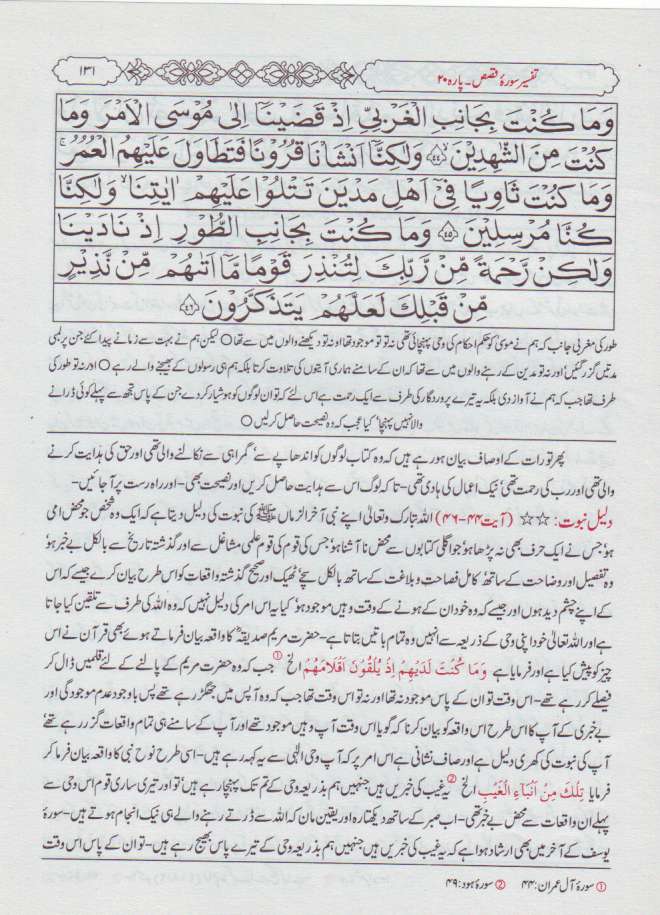 ۱۳۱
تفسیر سورۂ قصص۔ پارہ ۲۰
وَمَا كُنْتَ بِجَانِبِ الْغَرْبِيِّ اِذْ قَضَيْنَآ اِلٰى مُوْسَى الْاَمْرَ وَمَا
كُنْتَ مِنَ الشّٰهِدِيْنَ ﴿۴۴﴾ وَلٰكِنَّآ اَنْشَاْنَا قُرُوْنًا فَتَطَاوَلَ عَلَيْهِمُ الْعُمُرُ ۚ
وَمَا كُنْتَ ثَاوِيًا فِيْٓ اَهْلِ مَدْيَنَ تَتْلُوْا عَلَيْهِمْ اٰيٰتِنَا ۙ وَلٰكِنَّا
كُنَّا مُرْسِلِيْنَ ﴿۴۵﴾ وَمَا كُنْتَ بِجَانِبِ الطُّوْرِ اِذْ نَادَيْنَا
وَلٰكِنْ رَّحْمَةً مِّنْ رَّبِّكَ لِتُنْذِرَ قَوْمًا مَّآ اَتٰىهُمْ مِّنْ نَّذِيْرٍ
مِّنْ قَبْلِكَ لَعَلَّهُمْ يَتَذَكَّرُوْنَ ﴿۴۶﴾
طور کی مغربی جانب کہ ہم نے موسیٰ کو حکم احکام کی وحی پہنچائی تھی نہ تو تو موجود تھا اور نہ تو دیکھنے والوں میں سے تھا ○ لیکن ہم نے بہت سے زمانے پیدا کئے جن پر لمبی
مدتیں گزر گئیں' اور نہ تو مدین کے رہنے والوں میں سے تھا کہ ان کے سامنے ہماری آیتوں کی تلاوت کرتا بلکہ ہم ہی رسولوں کے بھیجنے والے رہے ○ اور نہ تو طور کی
طرف تھا جب کہ ہم نے آواز دی بلکہ یہ تیرے پروردگار کی طرف سے ایک رحمت ہے اس لئے کہ تو ان لوگوں کو ہوشیار کر دے جن کے پاس تجھ سے پہلے کوئی ڈرانے
والا نہیں پہنچا' کیا عجب کہ وہ نصیحت حاصل کر لیں ○
پھر تورات کے اوصاف بیان ہو رہے ہیں کہ وہ کتاب لوگوں کو اندھاپے سے' گمراہی سے نکالنے والی تھی اور حق کی ہدایت کرنے
والی تھی اور رب کی رحمت تھی' نیک اعمال کی ہادی تھی- تاکہ لوگ اس سے ہدایت حاصل کریں اور نصیحت بھی- اور راہ راست پر آ جائیں-
دلیل نبوت: ☆☆ (آیت:۴۴-۴۶) اللہ تبارک وتعالیٰ اپنے نبی آخر الزماں ﷺ کی نبوت کی دلیل دیتا ہے کہ ایک وہ شخص جو محض امی
ہو' جس نے ایک حرف بھی نہ پڑھا ہو' جو اگلی کتابوں سے محض نا آشنا ہو' جس کی قوم کی قوم علمی مشاغل سے اور گذشتہ تاریخ سے بالکل بے خبر ہو'
وہ تفصیل اور وضاحت کے ساتھ' کامل فصاحت و بلاغت کے ساتھ بالکل سچے' ٹھیک اور صحیح گذشتہ واقعات کو اس طرح بیان کرے جیسے کہ اس
کے اپنے چشم دید ہوں اور جیسے کہ وہ خود ان کے ہونے کے وقت وہیں موجود ہو' کیا یہ اس امر کی دلیل نہیں کہ وہ اللہ کی طرف سے تلقین کیا جاتا
ہے اور اللہ تعالیٰ خود اپنی وحی کے ذریعہ سے انہیں وہ تمام باتیں بتاتا ہے- حضرت مریم صدیقہ کا واقعہ بیان فرماتے ہوئے بھی قرآن نے اس
چیز کو پیش کیا ہے اور فرمایا ہے وَمَا كُنْتَ لَدَيْهِمْ اِذْ يُلْقُوْنَ اَقْلَامَهُمْ الخ ① جب کہ وہ حضرت مریم کے پالنے کے لئے قلمیں ڈال کر
فیصلے کر رہے تھے- اس وقت تو ان کے پاس موجود نہ تھا اور نہ تو اس وقت تھا جب کہ وہ آپس میں جھگڑ رہے تھے پس باوجود عدم موجودگی اور
بے خبری کے آپ کا اس طرح اس واقعہ کو بیان کرنا کہ گویا اس وقت آپ وہیں موجود تھے اور آپ کے سامنے ہی تمام واقعات گزر رہے تھے'
آپ کی نبوت کی کھری دلیل ہے اور صاف نشانی ہے اس امر پر کہ آپ وحی الٰہی سے یہ کہہ رہے ہیں- اسی طرح نوح نبی کا واقعہ بیان فرما کر
فرمایا تِلْكَ مِنْ اَنْبَآءِ الْغَيْبِ الخ ② یہ غیب کی خبریں ہیں جنہیں ہم بذریعہ وحی کے تم تک پہنچا رہے ہیں' تو اور تیری ساری قوم اس وحی سے
پہلے ان واقعات سے محض بے خبر تھی- اب صبر کے ساتھ دیکھتا رہ اور یقین مان کہ اللہ سے ڈرتے رہنے والے ہی نیک انجام ہوتے ہیں- سورۂ
یوسف کے آخر میں بھی ارشاد ہوا ہے کہ یہ غیب کی خبریں ہیں جنہیں ہم بذریعہ وحی کے تیرے پاس بھیج رہے ہیں- تو ان کے پاس اس وقت
① سورۂ آل عمران: ۴۴ ② سورۂ ہود: ۴۹